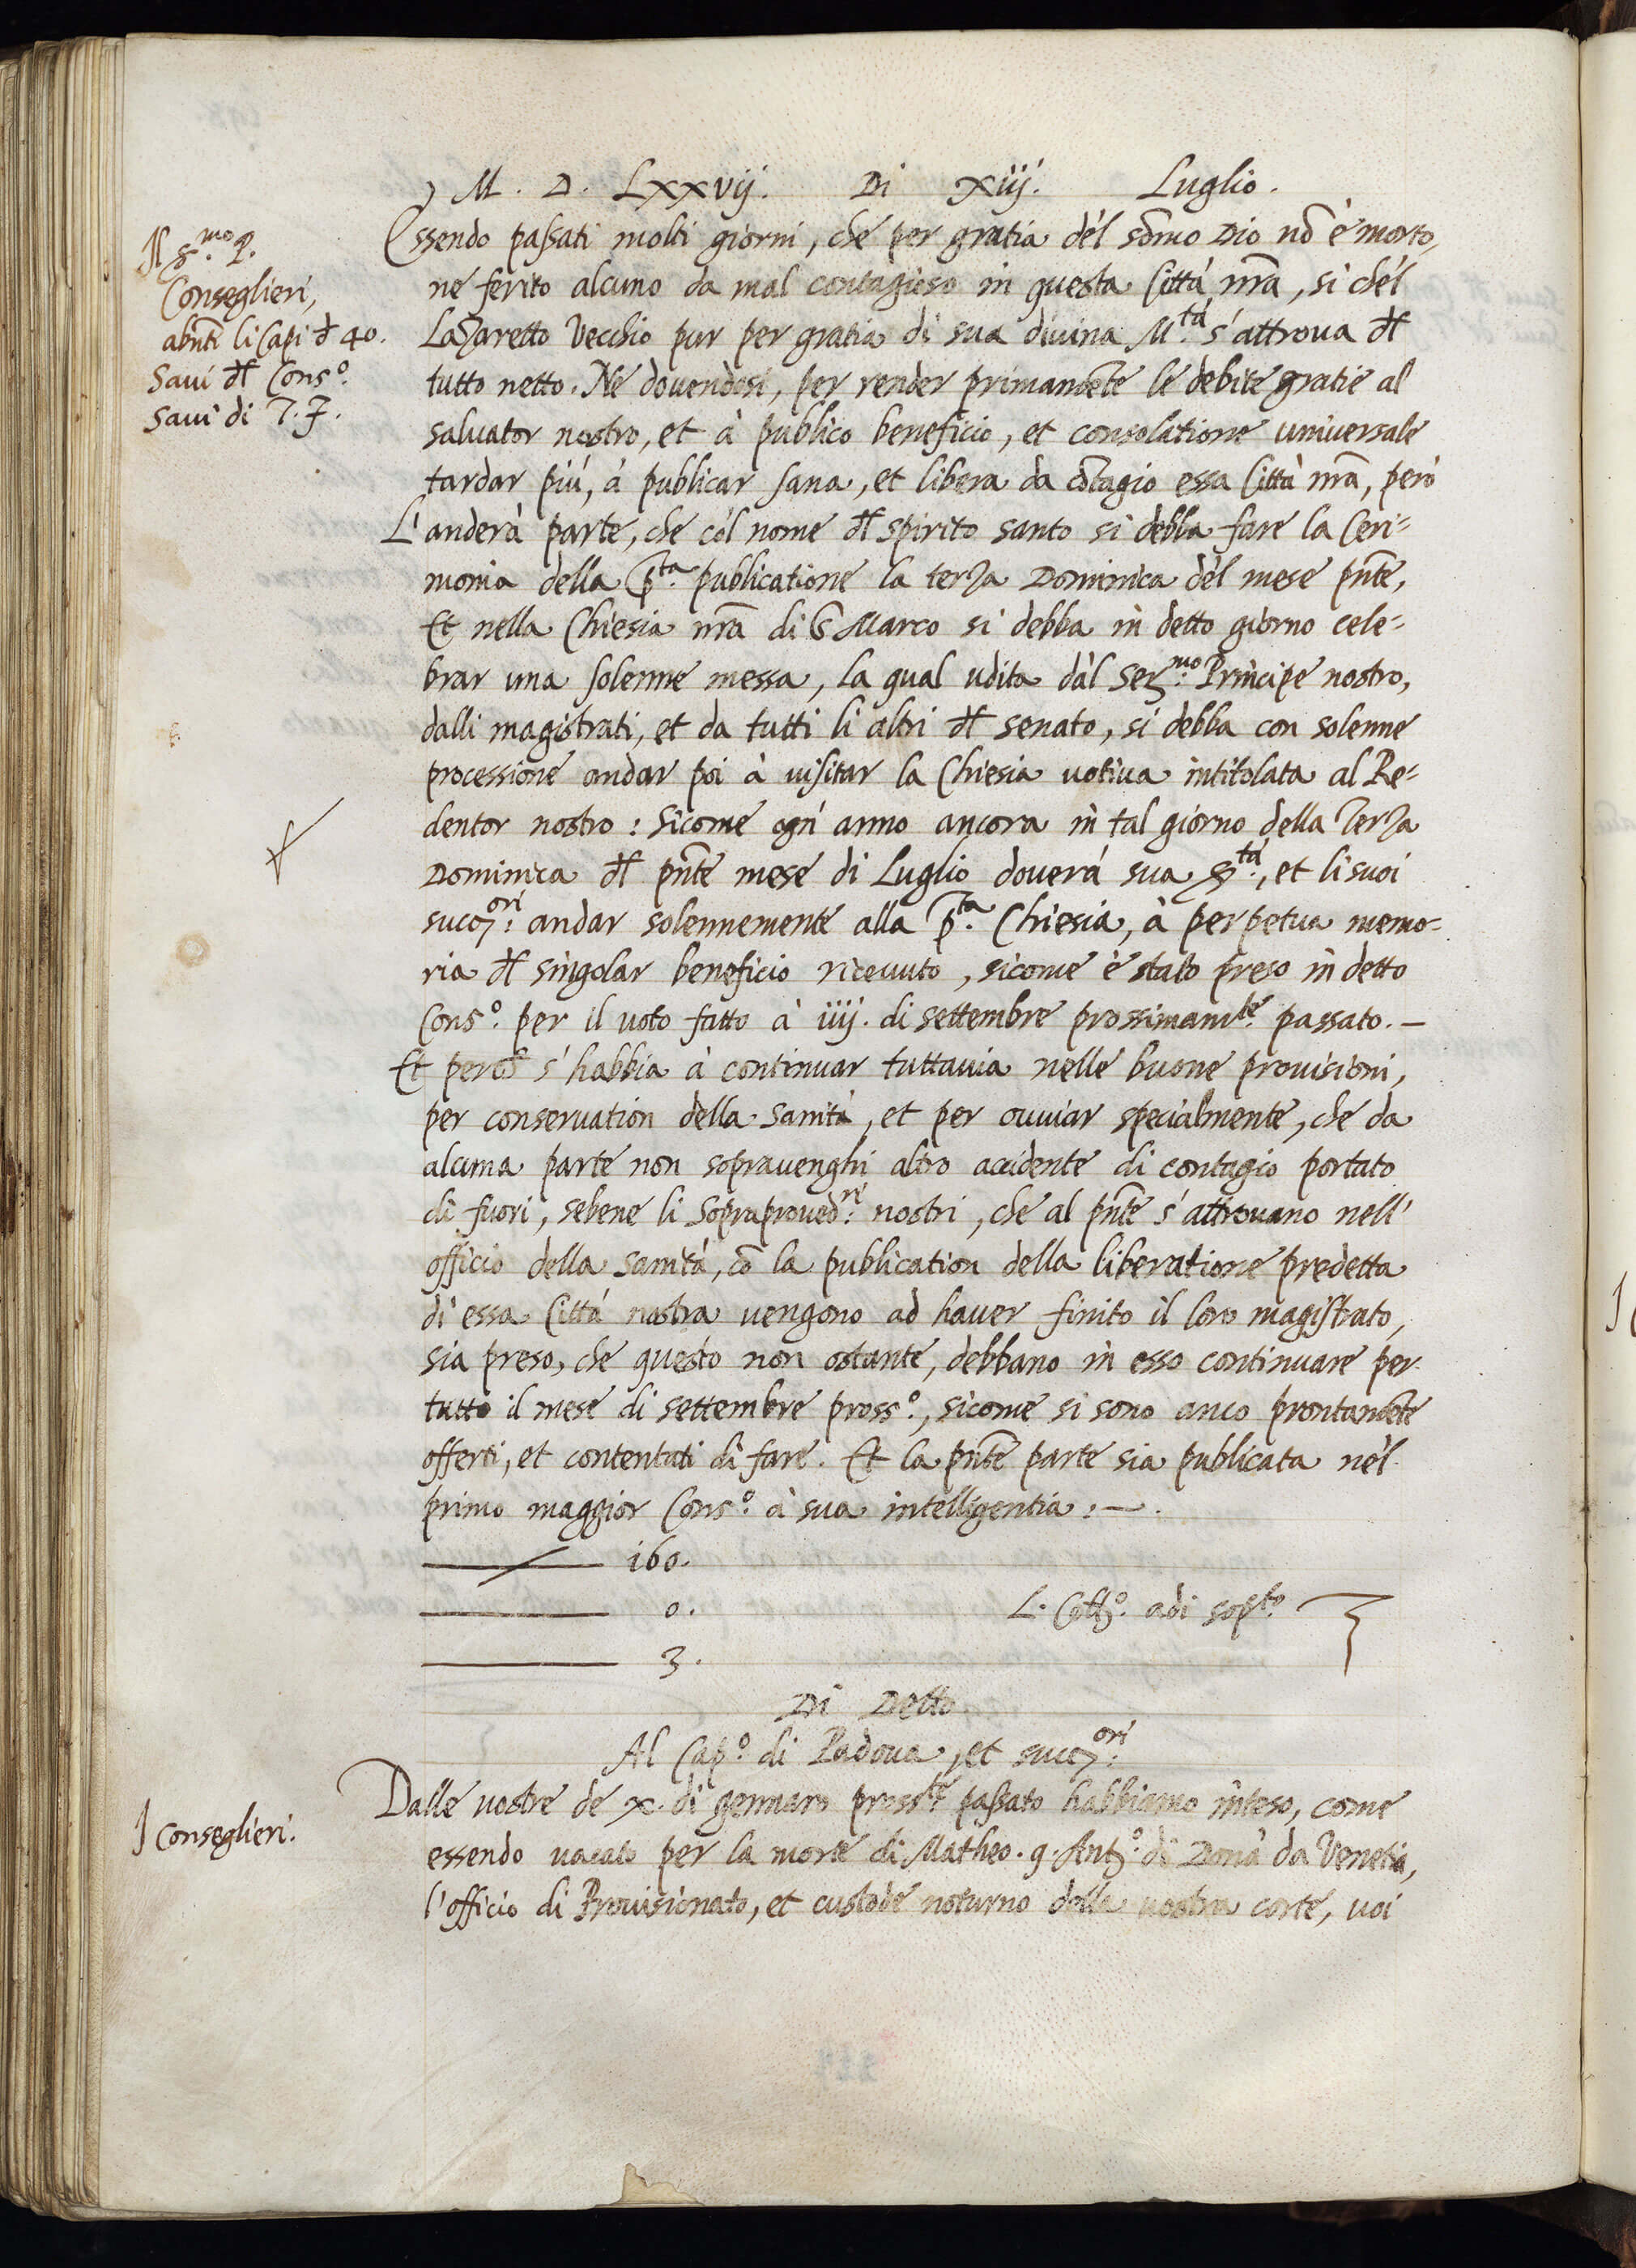 M. D. Lxxvij. Di xiij. Luglio.
Il S.mo P.
Conseglieri,
abñti li Capi đ 40.
Savi đl Cons.o
Savi di T. F.
Essendo passati molti giorni, che per gratia dèl som̃o Dio nõ è morto,
ne ferito alcuno da mal contagioso in questa Città nr̃a, si chèl
Lazaretto Vecchio pur per gratia di sua divina M.tà s'attrova đl
tutto netto. Ne dovendosi, per render primam̃ente le debite gratie al
salvator nostro, et à publico beneficio, et consolatione universale
tardar più, à publicar sana, et libera da cõtagio essa Città nr̃a, però
L'anderà parte, che còl nome đl spirito santo si debba fare la Ceri=
monia della p̃.ta publicatione la terza Dominica dèl mese pñte,
Et nella Chiesia nr̃a di S Marco si debba in detto giorno cele=
brar una solenne messa, la qual udita dàl Ser.mo Principe nostro,
dalli magistrati, et da tutti li altri đl senato, si debba con solenne
processione andar poi à visitar la Chiesia votiva intitolata al Re=
dentor nostro: sicome ogni anno ancora in tal giorno della Terza
Dominica đl pñte mese di Luglio doverà sua S.tà, et li suoi
succ.ori andar solennemente alla p̃.ta Chiesia, à perpetua memo=
ria đl singolar beneficio ricevuto, sicome è stato preso in detto
Cons.o per il voto fatto à iiij. di settembre prossimam.te passato. —
Et perchè s'habbia à continuar tuttavia nelle buone provisioni,
per conservation della sanità, et per ovviar specialmente, che da
alcuna parte non sopravenghi altro accidente di contagio portato
di fuori, sebene li Sopraproved.ri nostri, che al pñte s'attrovano nell'
officio della sanità, cõ la publication della liberatione predetta
di essa Città nostra vengono ad haver finito il loro magistrato,
sia preso, che questo non ostante, debbano in esso continuare per
tutto il mese di settembre pross.o, sicome si sono anco prontam̃ente
offerti, et contentati di fare. Et la pñte parte sia publicata nèl
primo maggior Cons.o à sua intelligentia. —.
160.
0.
L. Coll.o adi sop.to
3.
Di Detto
Al Cap.o di Padova, et succ.ori
I Conseglieri.
Dalle vostre de x. di gennaro pross.te passato habbiamo inteso, come
essendo vacato per la morte di Matheo. q. Ant.o di Donà da Venetia,
l'officio di Provisionato, et custode noturno della vostra corte, voi